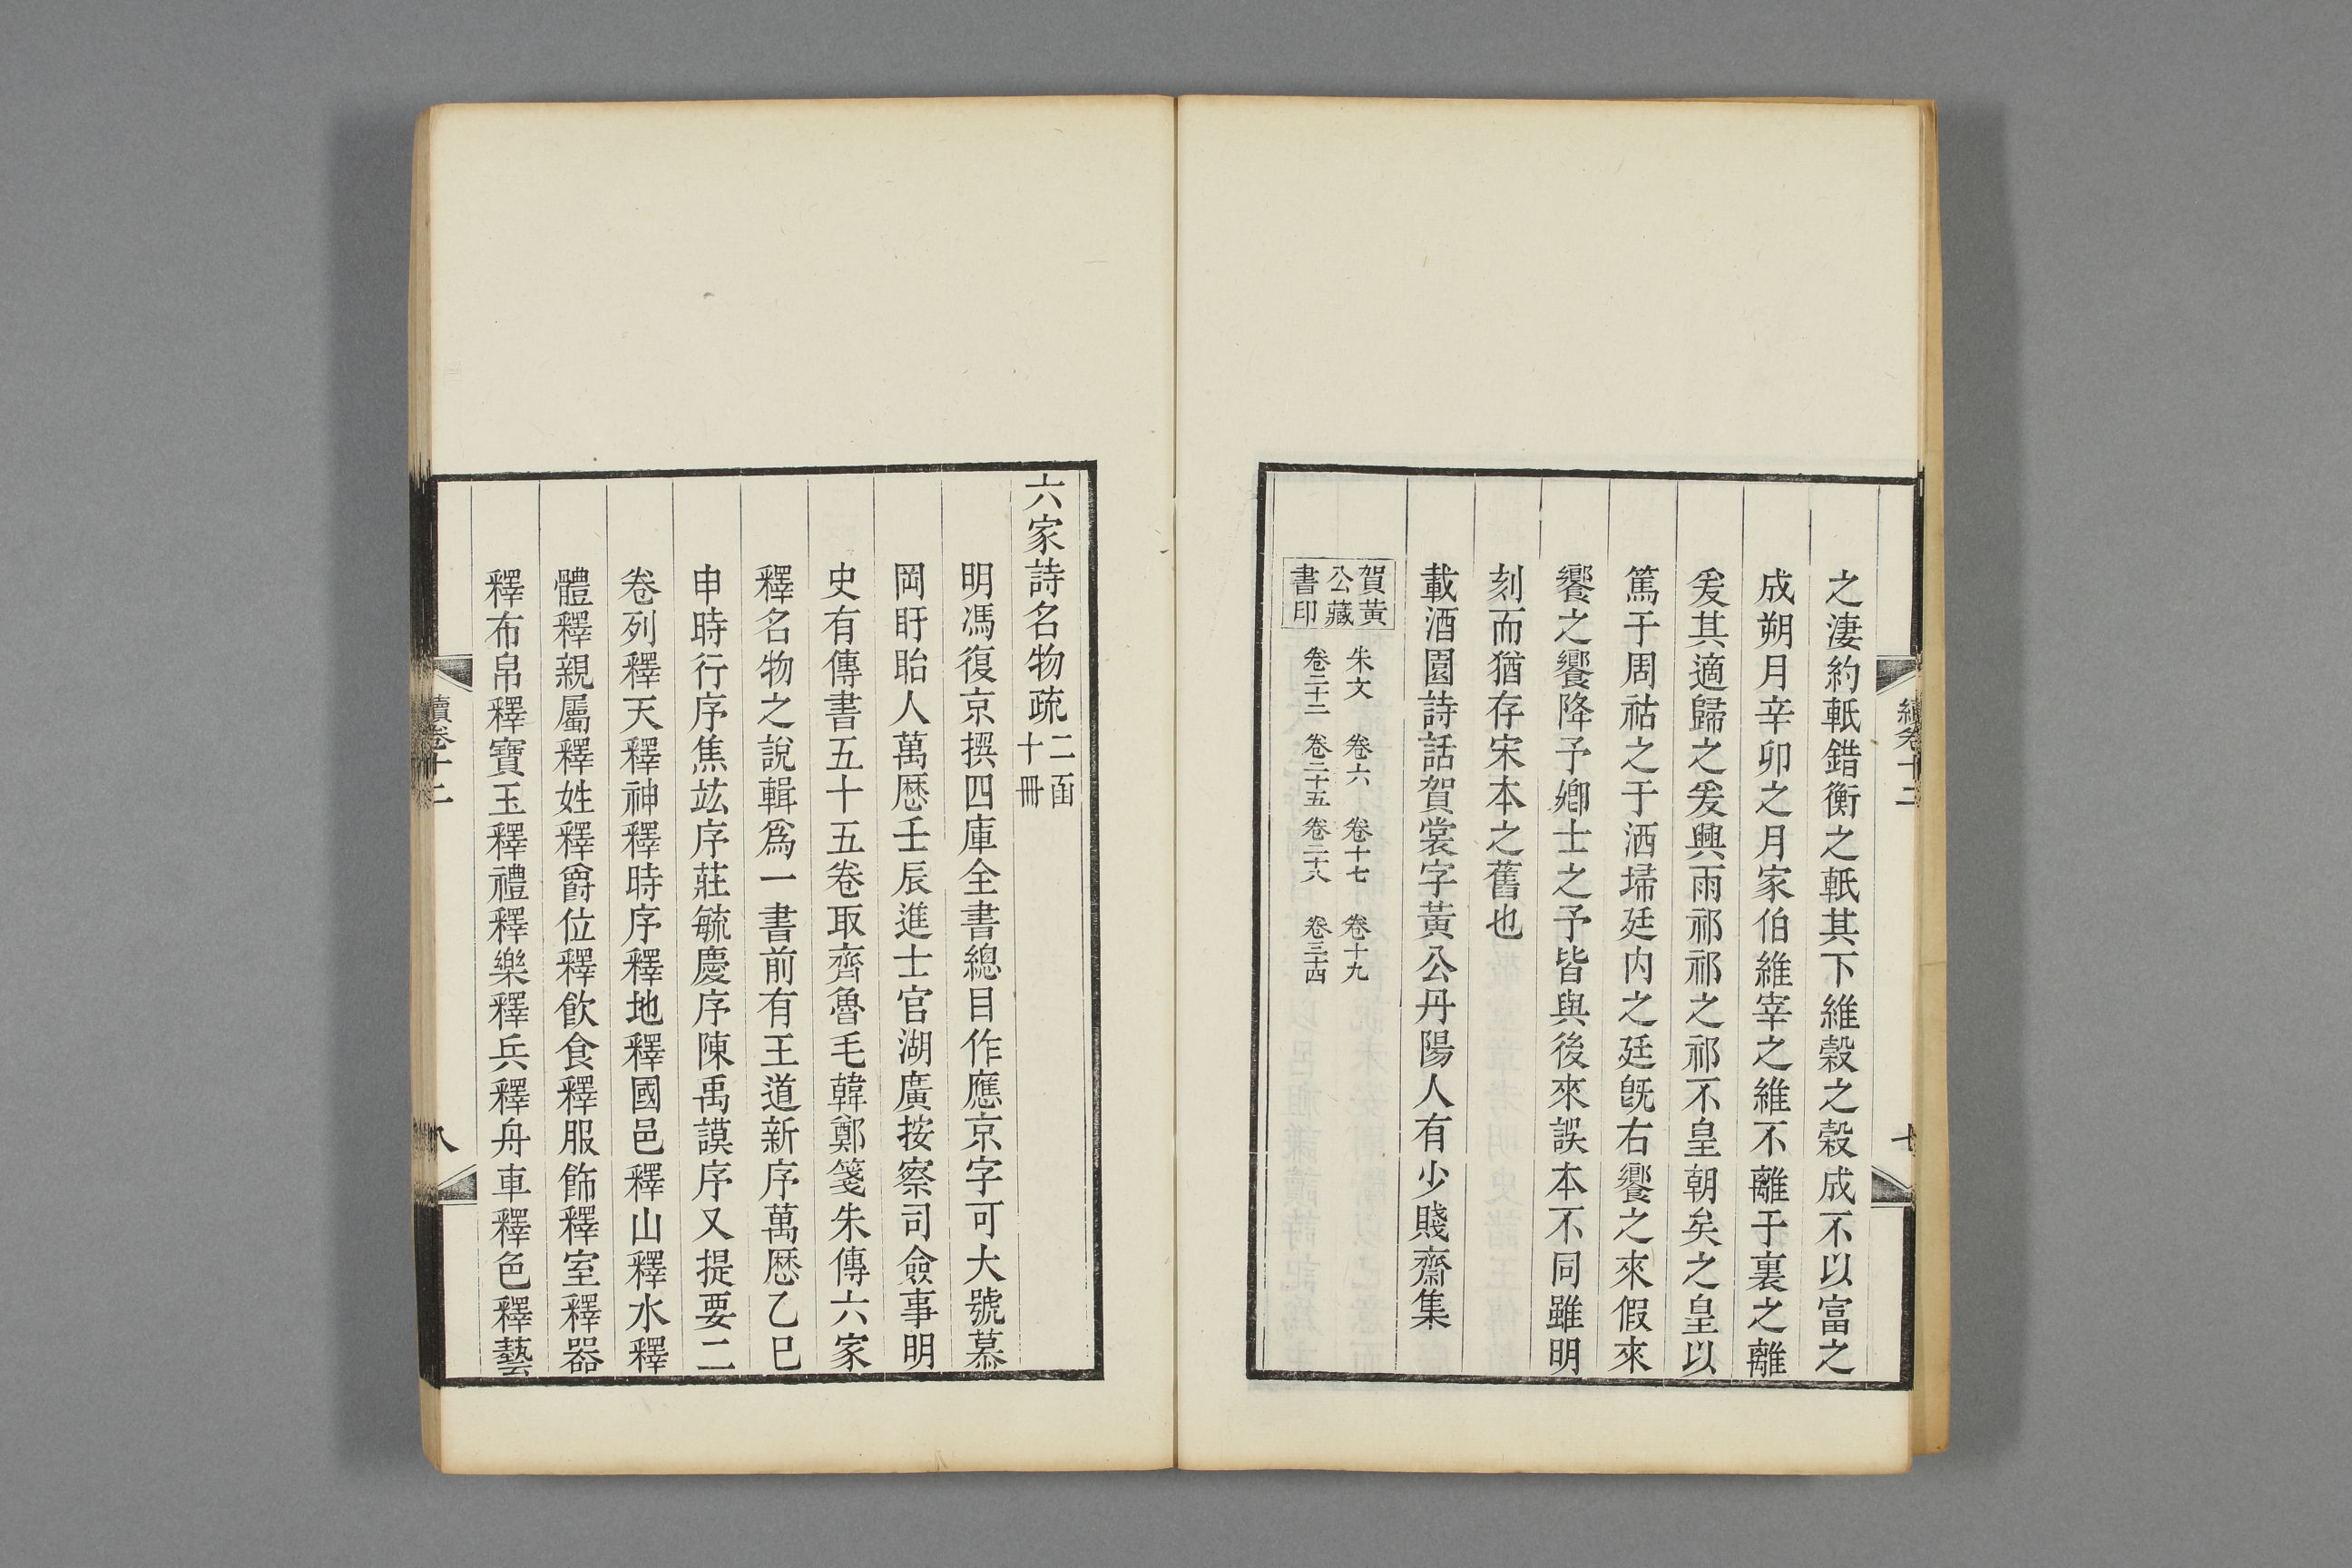 之淒約軝錯衡之軝其下維榖之榖成不以富之
成朔月辛卯之月家伯維宰之維不離于裏之離
爰其適歸之爰興雨祁祁之祁不皇朝矣之皇以
篤于周祜之于洒埽廷内之廷旣右饗之來假來
饗之饗降予卿士之予皆與後來誤本不同雖明
刻而猶存宋本之舊也
載酒園詩話賀裳字黃公丹陽人有少賤齋集
賀黃
公藏
書印
朱文 卷六 卷十七 卷十九
卷二十二 卷二十五 卷二十八 卷三十四
續卷十二
七
六家詩名物疏
二函
十冊
明馮復京撰四庫全書總目作應京字可大號慕
岡盱眙人萬厯壬辰進士官湖廣按察司僉事明
史有傳書五十五卷取齊魯毛韓鄭箋朱傳六家
釋名物之說輯爲一書前有王道新序萬厯乙巳
申時行序焦竑序莊毓慶序陳禹謨序又提要二
卷列釋天釋神釋時序釋地釋國邑釋山釋水釋
體釋親屬釋姓釋爵位釋飲食釋服飾釋室釋器
釋布帛釋寶玉釋禮釋樂釋兵釋舟車釋色釋藝
續卷十二
八